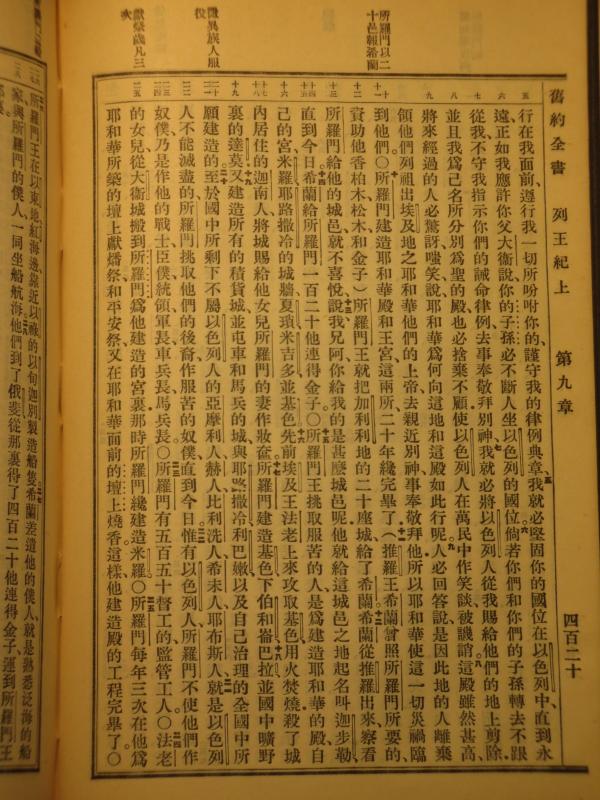 舊約全書 列王紀上 第九章 四百二十
行在我面前遵行我一切所吩咐你的謹守我的律例典章我就必堅固你的國位在以色列中直到永
遠正如我應許你父大衞說你的子孫必不斷人坐以色列的國位倘若你們和你們的子孫轉去不跟
從我不守我指示你們的誡命律例去事奉敬拜別神我就必將以色列人從我賜給他們的地上剪除
並且我爲己名所分別爲聖的殿也必捨棄不顧使以色列人在萬民中作笑談被譏誚這殿雖然甚高
將來經過的人必驚訝嗤笑說耶和華爲何向這地和這殿如此行呢人必回答說是因此地的人離棄
領他們列祖出埃及地之耶和華他們的上帝去親近別神事奉敬拜他所以耶和華使這一切災禍臨
到他們〇所羅門建造耶和華殿和王宮這兩所二十年纔完畢了(推羅王希蘭曾照所羅門所要的
資助他香柏木松木和金子)所羅門王就把加利利地的二十座城給了希蘭希蘭從推羅出來察看
所羅門給他的城邑就不喜悅說我兄阿你給我的是甚麼城邑呢他就給這城邑之地起名叫迦步勒
直到今日希蘭給所羅門一百二十他連得金子〇所羅門王挑取服苦的人是爲建造耶和華的殿自
己的宮米羅耶路撒冷的城牆夏瑣米吉多並基色先前埃及王法老上來攻取基色用火焚燒殺了城
內居住的迦南人將城賜給他女兒所羅門的妻作妝奩所羅門建造基色下伯和崙巴拉並國中曠野
裏的達莫又建造所有的積貨城並屯車和馬兵的城與耶路撒冷利巴嫩以及自己治理的全國中所
願建造的至於國中所剩下不屬以色列人的亞摩利人赫人比利洗人希未人耶布斯人就是以色列
人不能滅盡的所羅門挑取他們的後裔作服苦的奴僕直到今日惟有以色列人所羅門不使他們作
奴僕乃是作他的戰士臣僕統領軍長車兵長馬兵長〇所羅門有五百五十督工的監管工人〇法老
的女兒從大衞城搬到所羅門爲他建造的宮裏那時所羅門纔建造米羅〇所羅門每年三次在他爲
耶和華所築的壇上獻燔祭和平安祭又在耶和華面前的壇上燒香這樣他建造殿的工程完畢了〇
所羅門以二
十邑報希蘭
徵異族人服
役
獻祭歲凡三
次
所羅門王在以東地紅海邊靠近以祿的以旬迦別製造船隻希蘭差遣他的僕人就是熟悉泛海的船
家與所羅門的僕人一同坐船航海他們到了俄斐從那裏得了四百二十他連得金子運到所羅門王
那裏